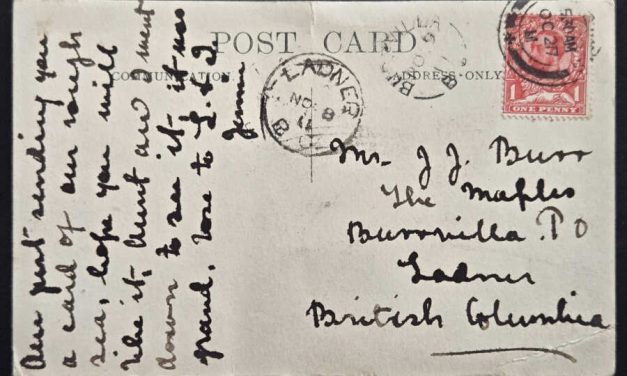 POST CARD
COMMUNICATION.
ADDRESS ONLY.
LADNER
NO 8
11
B.C.
BURRVILLA
B
OC 27
11
1
1
ONE PENNY
Am just sending you
a card of our rough
sea, hope you will
like it, Aunt went
down to see it it was
grand, love to
Mr. J J. Burr
The Maples
Burrvilla P O
Ladner
British Columbia